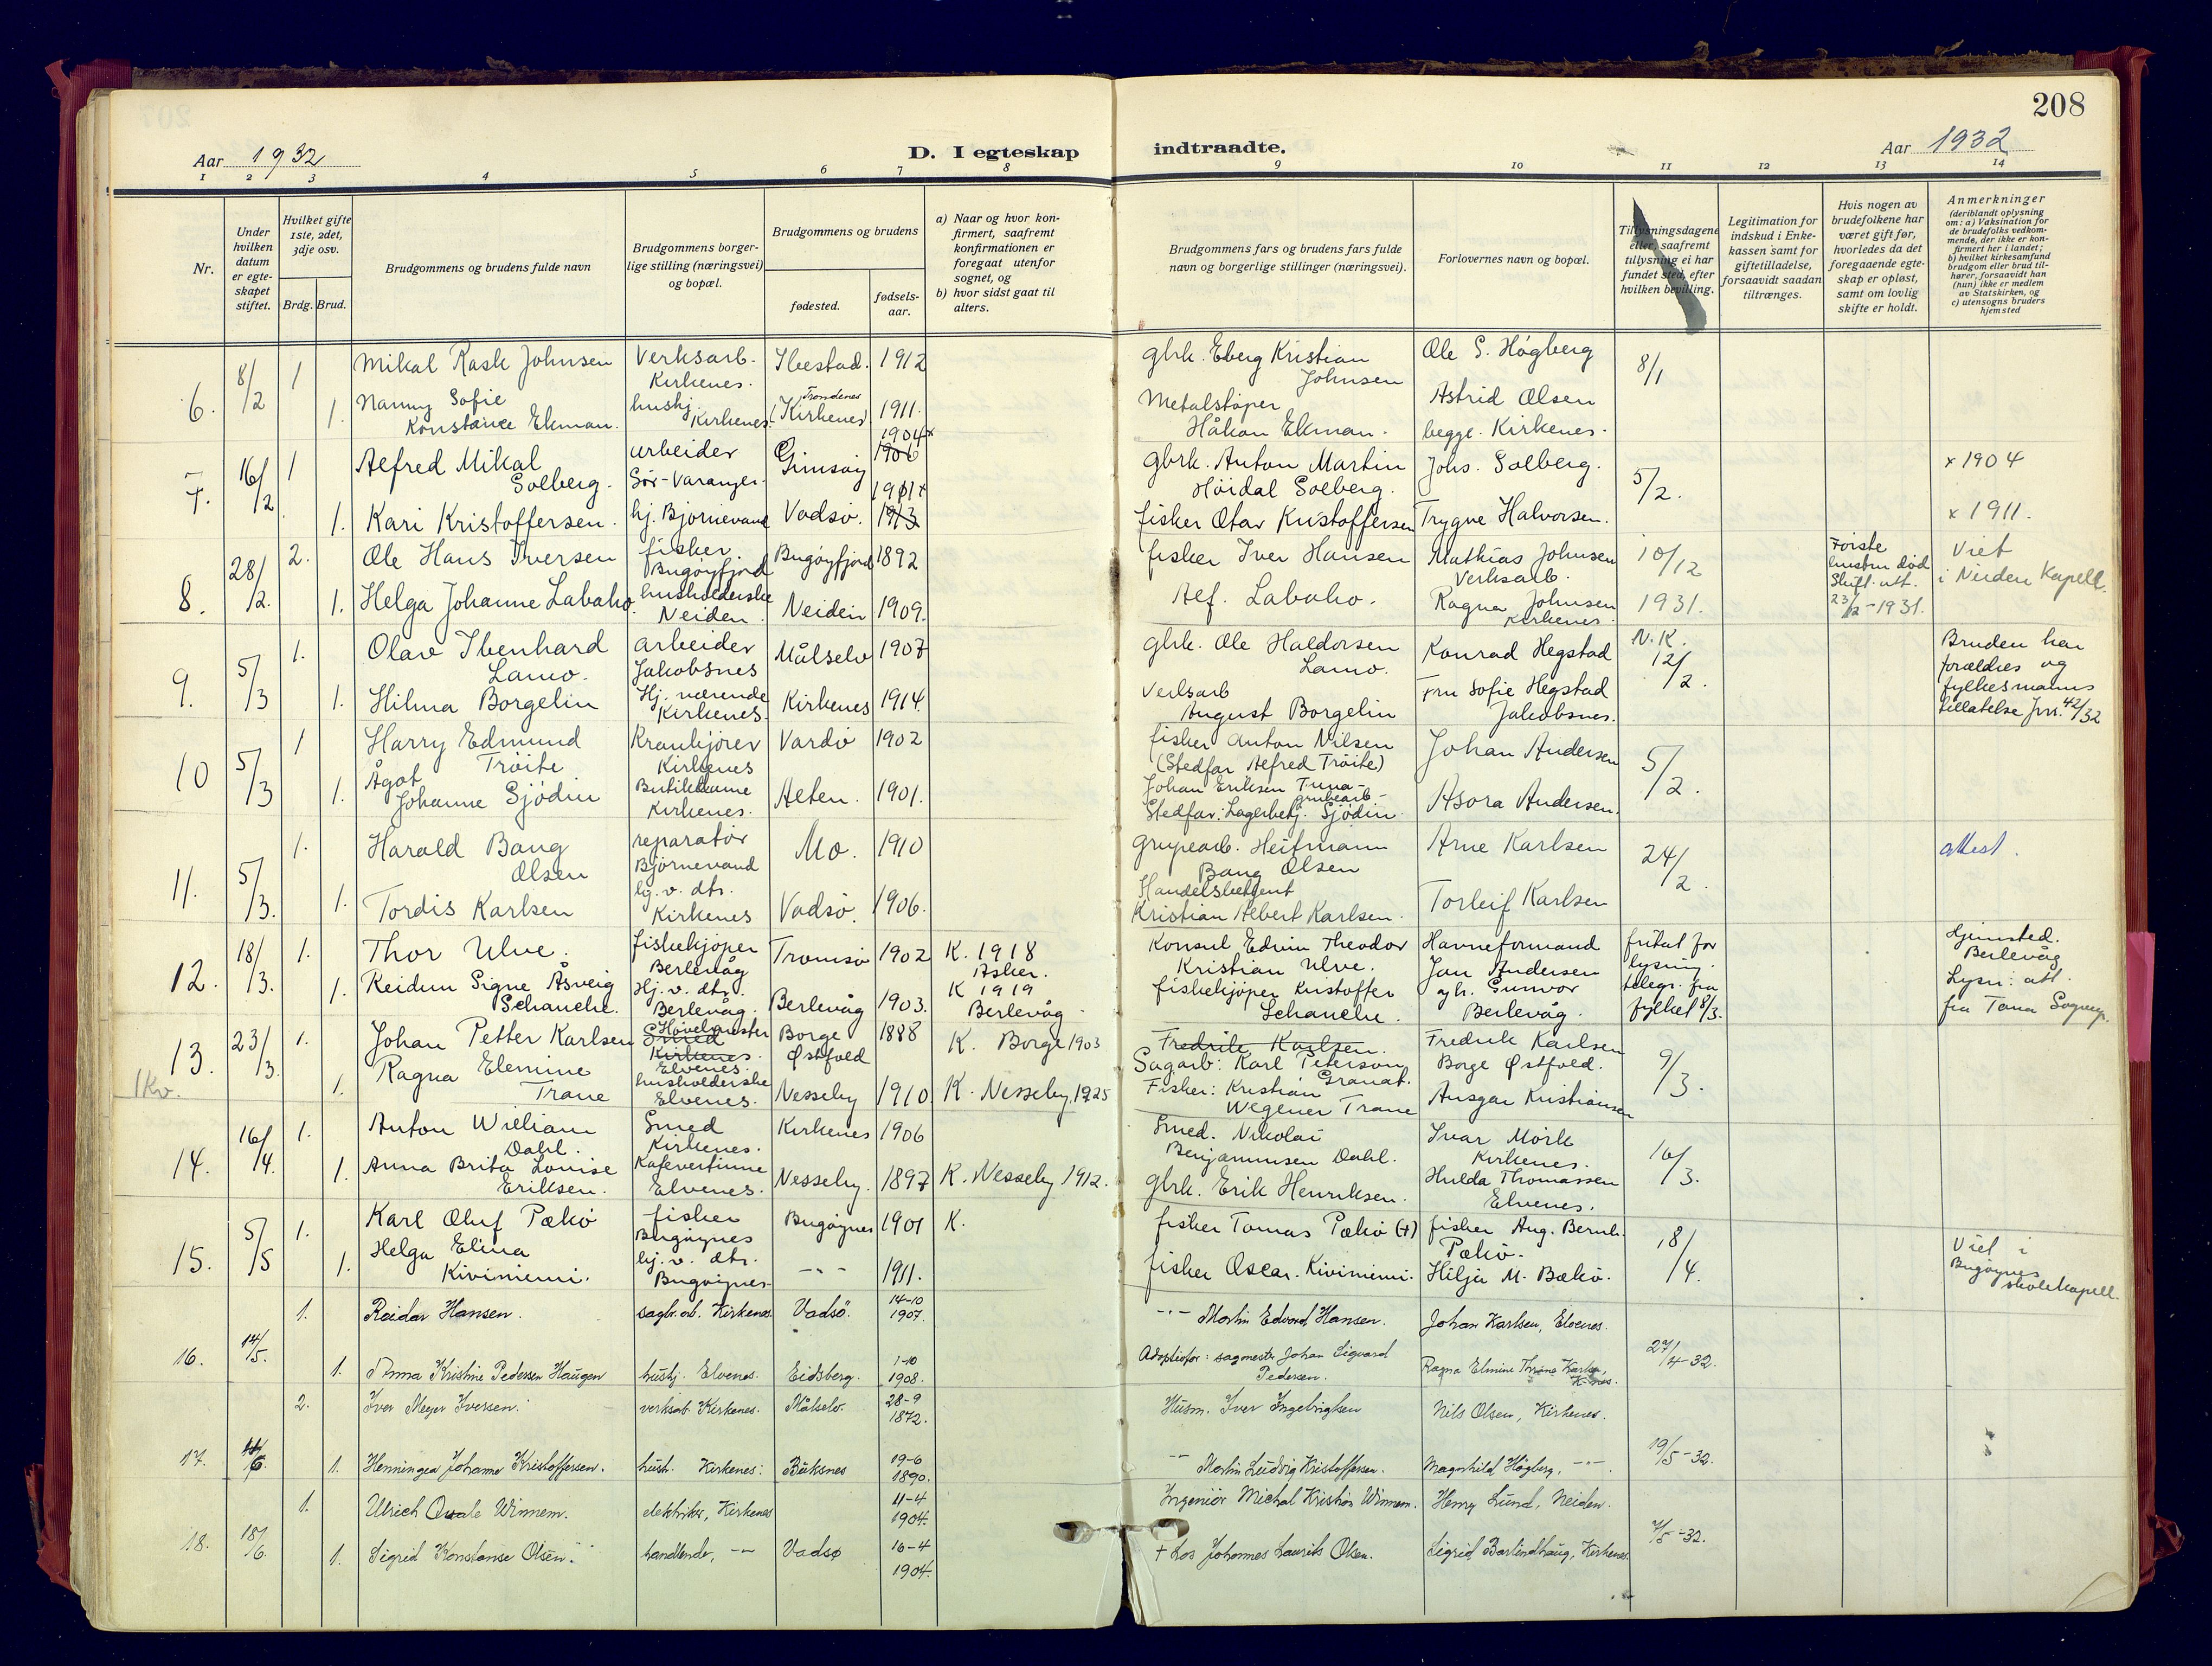 208
Aar 1932
D. I egteskap indtraadte.
Aar 1932
1 2 3 4 5 6 7 8 9 10 11 12 13 14
Nr.
Under hvilken datum er egteskapet stiftet.
Hvilket gifte 1ste, 2det, 3dje osv.
Brdg. Brud.
Brudgommens og brudens fulde navn
Brudgommens borgerlige stilling (næringsvei) og bopæl.
Brudgommens og brudens
fødested.
fødselsaar.
a) Naar og hvor konfirmert, saafremt konfirmationen er foregaat utenfor sognet, og
b) hvor sidst gaat til alters.
Brudgommens fars og brudens fars fulde navn og borgerlige stillinger (næringsvei).
Forlovernes navn og bopæl.
Tillysningsdagene eller, saafremt tillysning ei har fundet sted, efter hvilken bevilling.
Legitimation for indskud i Enkekassen samt for giftetilladelse, forsaavidt saadan tiltrænges.
Hvis nogen av brudefolkene har været gift før, hvorledes da det foregaaende egteskap er opløst, samt om lovlig skifte er holdt.
Anmerkninger
(deriblandt oplysning om: a) Vaksination for de brudefolks vedkommende, der ikke er konfirmert her i landet; b) hvilket kirkesamfund brudgom eller brud tilhører, forsaavidt han (hun) ikke er medlem av Statskirken, og c) utensogns bruders hjemsted
6. 8/2 1 Mikal Rask Johnsen Verksarb. Kirkenes. Ibestad. 1912 gbrk. Eberg Kristian Johnsen Ole S. Høgberg 8/1
1. Nanny Sofie Konstanse Ekman. hushj. Kirkenes. Trondenes (Kirkenes) 1911. Metalstøper Håkon Ekman. Astrid Olsen begge. Kirkenes.
7. 16/2 1 Alfred Mikal Solberg. arbeider Sør-Varanger. Gimsøy 1904x 1906 gbrk. Anton Martin Høidal Solberg. Johs. Solberg. 5/2. x 1904
1. Kari Kristoffersen. hj. Bjørnevand Vadsø. 1911x 1913 fisker Olav Kristoffersen Trygve Halvorsen. x 1911.
8. 28/2. 2. Ole Hans Iversen fisker. Bugøyfjord Bugøyfjord 1892 fisker Iver Hansen Mathias Johnsen Verksarb. 10/12 Første hustru død Skift. att. 23/12-1931. Viet i Neiden Kapell.
1. Helga Johanne Labaho. husholderske Neiden. Neiden 1909. Alf. Labaho. Ragna Johnsen Kirkenes. 1931.
9. 5/3 1. Olav Ibenhard Lamo. arbeider Jakobsnes Målselv 1907 gbrk. Ole Haldorsen Lamo. Konrad Hegstad N.K. 12/2. Bruden har forældres og fylkesmanns tillatelse Jnr. 42/32
1. Hilma Borgelin Hj. værende Kirkenes. Kirkenes 1914. Verksarb August Borgelin Fru Sofie Hegstad Jakobsnes.
10 5/3 1 Harry Edmund Trøite Krankjører Kirkenes Vardø 1902 fisker Anton Nilsen (Stedfar Alfred Trøite) Johan Andersen 5/2.
1. Ågot Johanne Sjødin Butikkdame Kirkenes. Alten. 1901. Johan Eriksen Tuna- grubearb- Stedfar: Lagerbetj. Sjødin. Asora Andersen.
11. 5/3. 1. Harald Bang Olsen reparatør Bjørnevand Mo. 1910 Grupearb. Heitmann Bang Olsen Arne Karlsen 24/2. attest.
1. Tordis Karlsen hj. v. dtr. Kirkenes Vadsø. 1906. Handelsbetjent Kristian Albert Karlsen. Torleif Karlsen
12. 18/3. 1. Thor Ulve. fiskekjøper Berlevåg Tromsø 1902 K. 1918 Asker. Konsul Edvin Theodor Kristian Ulve. Havneformand Jan Andersen fritat for lysning. telegr. fra fylket 8/3. Hjemsted. Berlevåg Lysn: att fra Tana Sognep.
1. Reidun Signe Åsveig Schanche. Hj. v. dtr. Berlevåg. Berlevåg 1903. K 1919 Berlevåg. fiskekjøper Kristoffer Schanche. og hr. Gunvor Berlevåg.
13. 23/3. 1. Johan Petter Karlsen Høvelmester Smed Kirkenes. Elvenes. Borge Østfold 1888 K. Borge 1903 Fredrik Karlsen. Sagarb: Karl Peterson Granat. Fredrik Karlsen Borge Østfold. 9/3.
1 Kv. 1. Ragna Elemine Trane husholderske Elvenes. Nesseby 1910 K. Nesseby, 1925 Fisker: Kristian Wegener Trane Ansgar Kristiansen
14. 16/4. 1. Anton William Dahl. Smed Kirkenes. Kirkenes 1906 Smed. Nikolai Benjaminsen Dahl. Ivar Mørk Kirkenes. 16/3.
1. Anna Brita Lovise Eriksen. Kafevertinne Elvenes. Nesseby. 1897 K. Nesseby 1912. gbrk. Erik Henriksen. Hulda Thomassen Elvenes.
15. 5/5 1. Karl Oluf Pækø fisker Bugøynes Bugøynes 1901 K. fisker Tomas Pækø (+) fisker Aug. Bernh. Pækø. 18/4. Viet i Bugøynes skolekapell.
1. Helga Elina Kiviniemi. hj. v. dtr. Bugøynes - " - 1911. fisker Oscar. Kiviniemi. Hilja M. Bækø.
16. 14/5. 1. Reidar Hansen. sagbr.arb. Kirkenes. Vadsö. 14-10 1907. -"- Martin Edvard Hansen. Johan Karlsen, Elvenes. 27/4-32.
1. Anna Kristine Pedersen Haugen hushj. Elvenes. Eidsberg. 1-10 1908. Adoptivfar: sagmester Johan Sigvard Pedersen. Ragna Elmine Thrane Karlsen, K-nes.
17. /6. 2. Iver Meyer Iversen. verksarb. Kirkenes. Målselv. 28-9 1872. Husm. Iver Ingebrigtsen Nils Olsen, Kirkenes. 19/5-32.
1. Henningea Johanne Kristoffersen. hush. Kirkenes. Buksnes 19-6 1890. -"- Martin Ludvig Kristoffersen. Magnhild Högberg, -"-.
18. 18/6. 1. Ulrich Qvale Winnem. elektriker, Kirkenes 11-4 1904. Ingeniör Michal Kristian Winnem. Henry Lund, Neiden. 7/5-32.
1. Sigrid Konstanse Olsen. handlende, -"- Vadsø 16-4 1904. + Los Johannes Laurits Olsen. Sigrid Barlindhaug, Kirkenes.